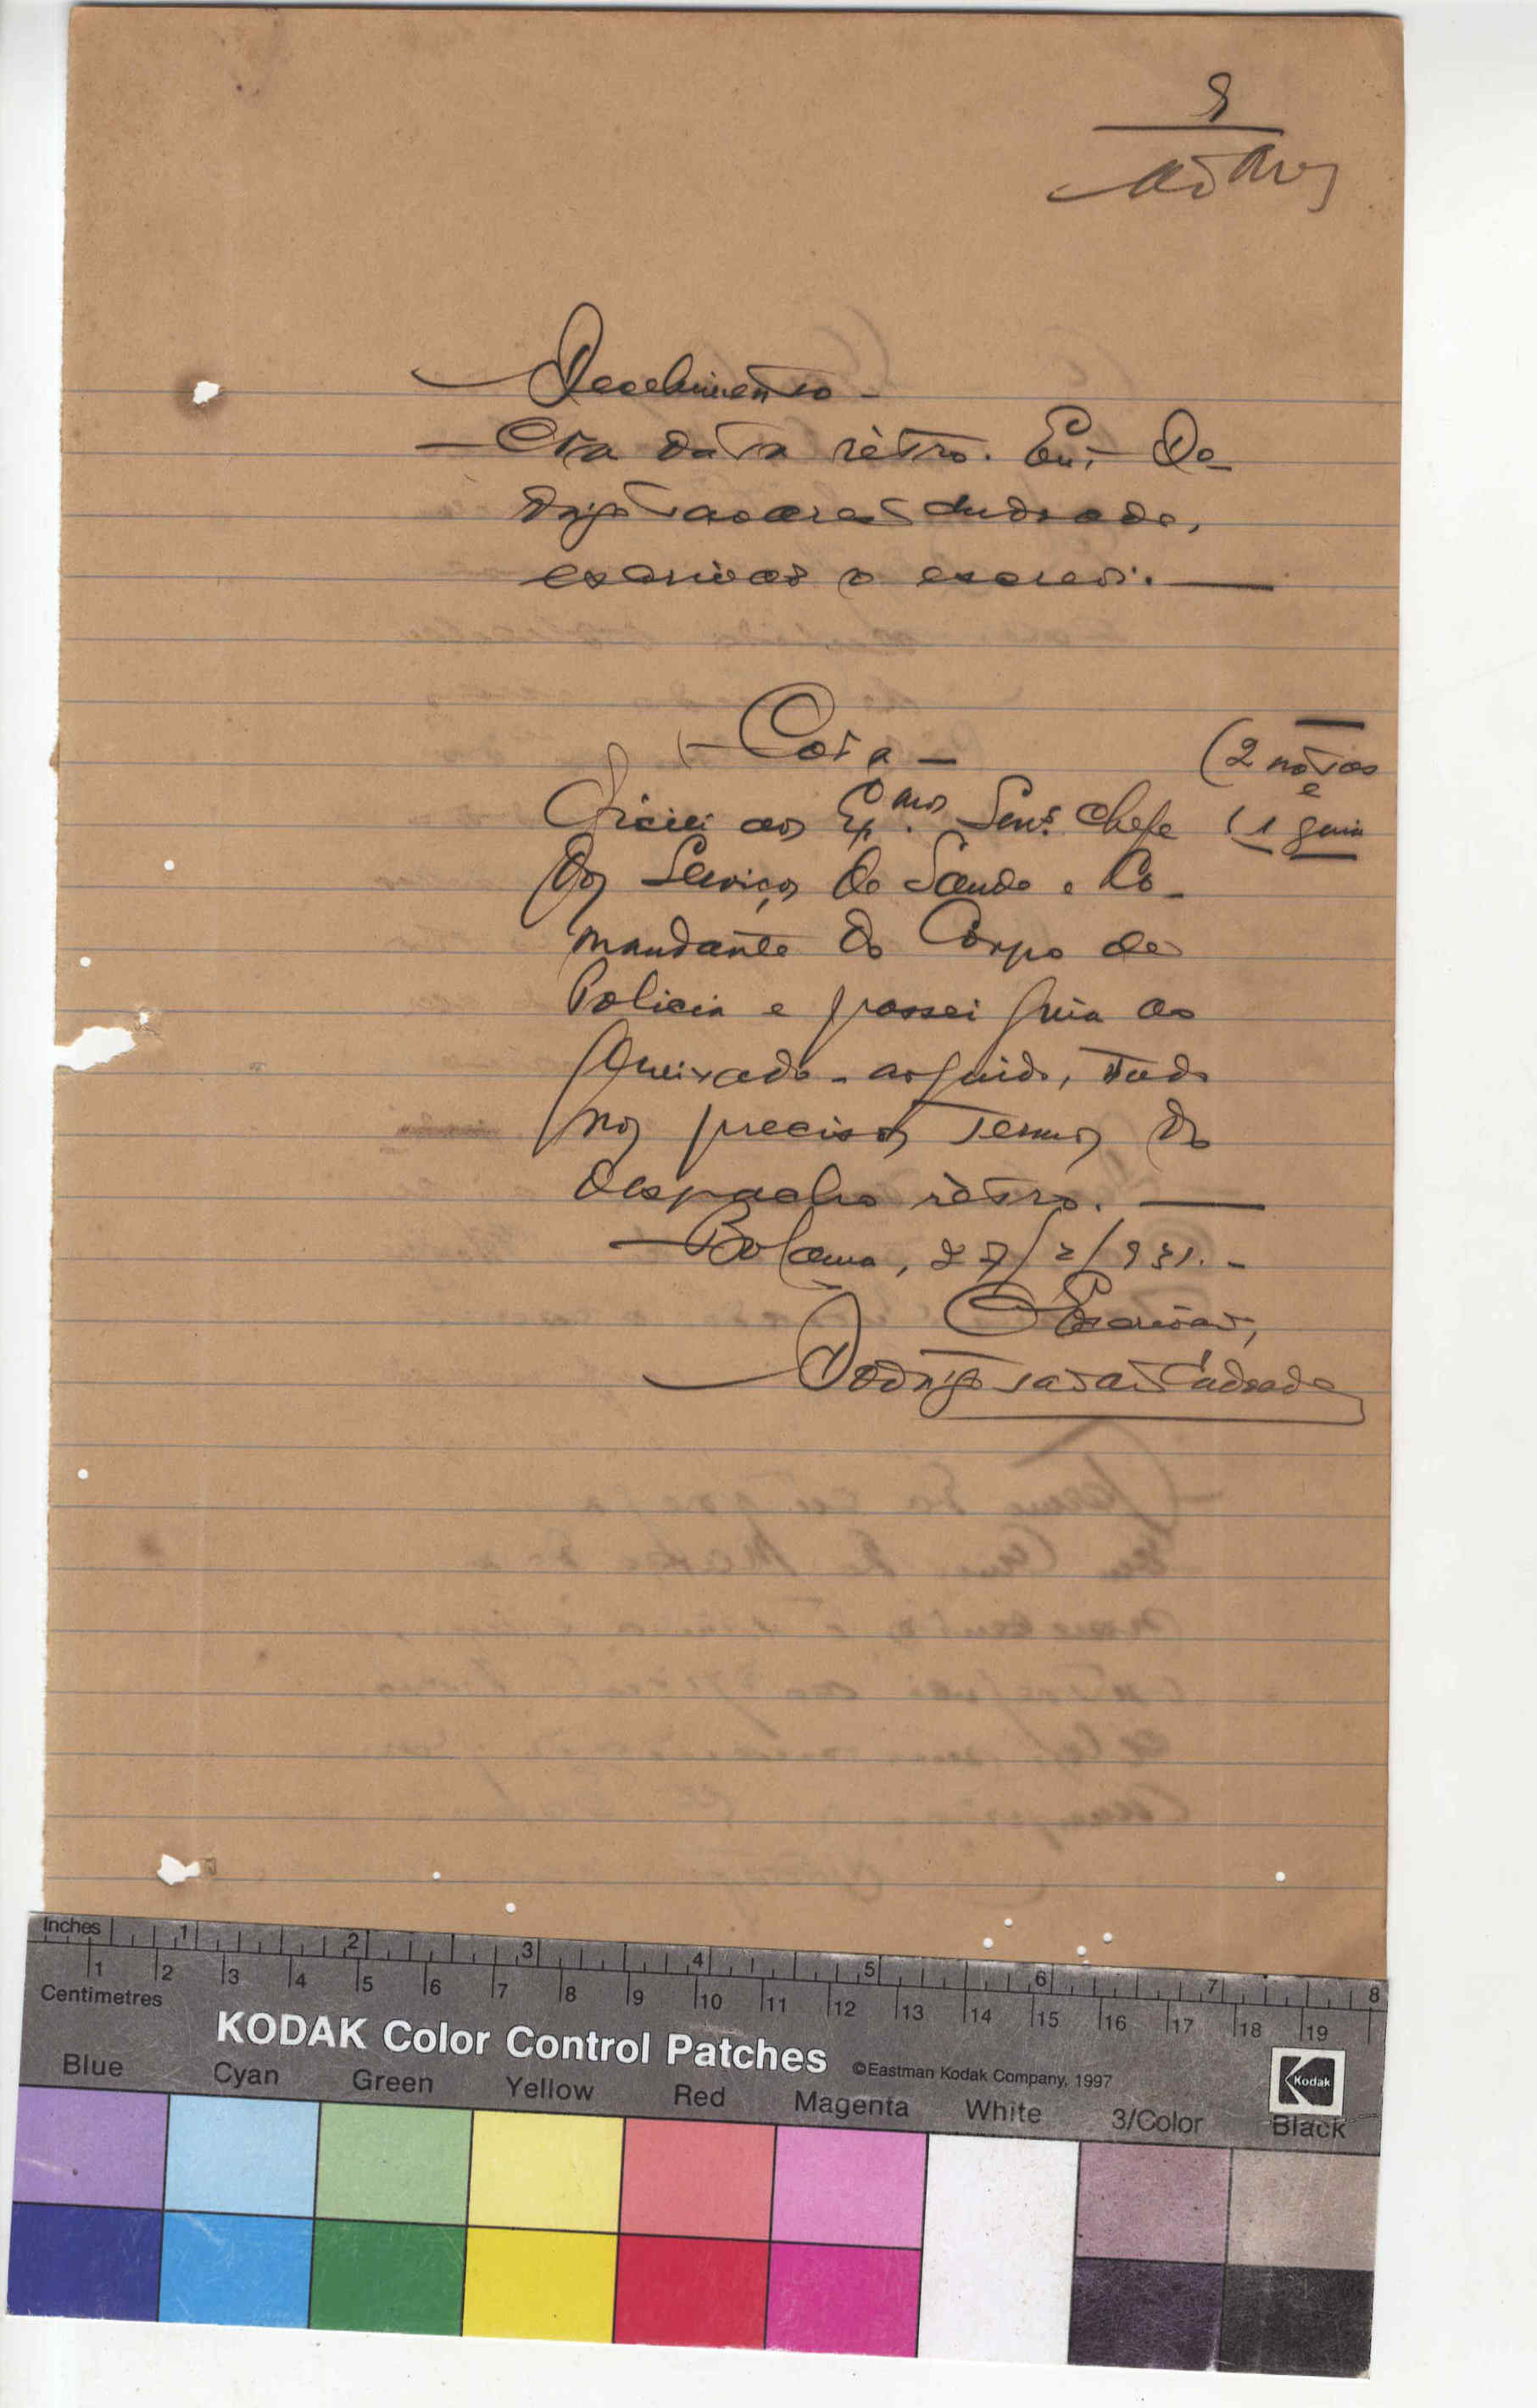 Recebimento -
Era data rètro. Eu, Ro-
drigo Tavares Andrade,
escrivão o escrevi.
- Cota -
(2 notas
e
(1 guia
Oficiei aos Ex.mos Senrs. Chefe
dos Serviços de Saude e Co-
mandante do Corpo de
Policia e passei guia ao
queixado-arguido, tudo
nos precisos termos do
despacho rètro.
Bolama, 27/2/931. -
O Escrivão,
Rodrigo Tavares Andrade
Inches 1 2 3 4 5 6 7 8
Centimetres 1 2 3 4 5 6 7 8 9 10 11 12 13 14 15 16 17 18 19
KODAK Color Control Patches
©Eastman Kodak Company, 1997
Kodak
Blue Cyan Green Yellow Red Magenta White 3/Color Black